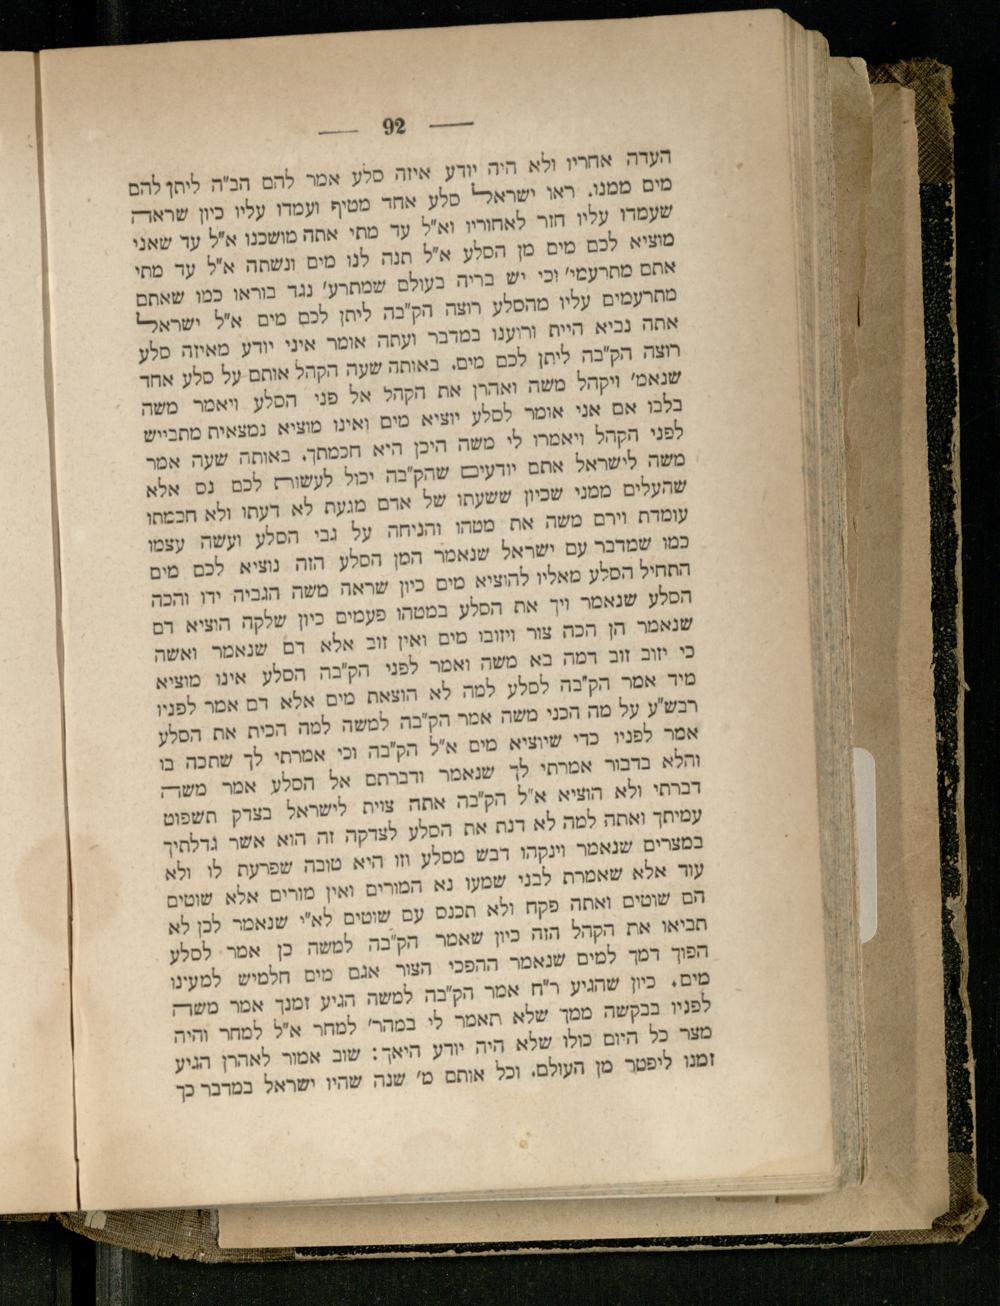 — 92 —
העדה אחריו ולא היה יודע איזה סלע אמר להם הב״ה ליתן להם
מים ממנו. ראו ישראל סלע אחד מטיף ועמדו עליו כיון שראה
שעמדו עליו חזר לאחוריו וא״ל עד מתי אתה מושכנו א״ל עד שאני
מוציא לכם מים מן הסלע א״ל תנה לנו מים ונשתה א״ל עד מתי
אתם מתרעמי׳ וכי יש בריה בעולם שמתרע׳ נגד בוראו כמו שאתם
מתרעמים עליו מהסלע רוצה הק״בה ליתן לכם מים א״ל ישראל
אתה נביא היית ורוענו במדבר ועתה אומר איני יודע מאיזה סלע
רוצה הק״בה ליתן לכם מים. באותה שעה הקהל אותם על סלע אחד
שנאמ׳ ויקהל משה ואהרן את הקהל אל פני הסלע ויאמר משה
בלבו אם אני אומר לסלע יוציא מים ואינו מוציא נמצאית מתבייש
לפני הקהל ויאמרו לי משה היכן היא חכמתך. באותה שעה אמר
משה לישראל אתם יודעים שהק״בה יכול לעשות לכם נס אלא
שהעלים ממני שכיון ששעתו של אדם מגעת לא דעתו ולא חכמתו
עומדת וירם משה את מטהו והניחה על גבי הסלע ועשה עצמו
כמו שמדבר עם ישראל שנאמר המן הסלע הזה נוציא לכם מים
התחיל הסלע מאליו להוציא מים כיון שראה משה הגביה ידו והכה
הסלע שנאמר ויך את הסלע במטהו פעמים כיון שלקה הוציא דם
שנאמר הן הכה צור ויזובו מים ואין זוב אלא דם שנאמר ואשה
כי יזוב זוב דמה בא משה ואמר לפני הק״בה הסלע אינו מוציא
מיד אמר הק״בה לסלע למה לא הוצאת מים אלא דם אמר לפניו
רבש״ע על מה הכני משה אמר הק״בה למשה למה הכית את הסלע
אמר לפניו כדי שיוציא מים א״ל הק״בה וכי אמרתי לך שתכה בו
והלא בדבור אמרתי לך שנאמר ודברתם אל הסלע אמר משה
דברתי ולא הוציא א״ל הק״בה אתה צוית לישראל בצדק תשפוט
עמיתך ואתה למה לא דנת את הסלע לצדקה זה הוא אשר גדלתיך
במצרים שנאמר וינקהו דבש מסלע וזו היא טובה שפרעת לו ולא
עוד אלא שאמרת לבני שמעו נא המורים ואין מורים אלא שוטים
הם שוטים ואתה פקח ולא תכנס עם שוטים לא״י שנאמר לכן לא
תביאו את הקהל הזה כיון שאמר הק״בה למשה כן אמר לסלע
הפוך דמך למים שנאמר ההפכי הצור אגם מים חלמיש למעינו
מים. כיון שהגיע ר״ח אמר הק״בה למשה הגיע זמנך אמר משה
לפניו בבקשה ממך שלא תאמר לי במהר׳ למחר א״ל למחר והיה
מצר כל היום כולו שלא היה יודע היאך: שוב אמור לאהרן הגיע
זמנו ליפטר מן העולם. וכל אותם מ׳ שנה שהיו ישראל במדבר כך